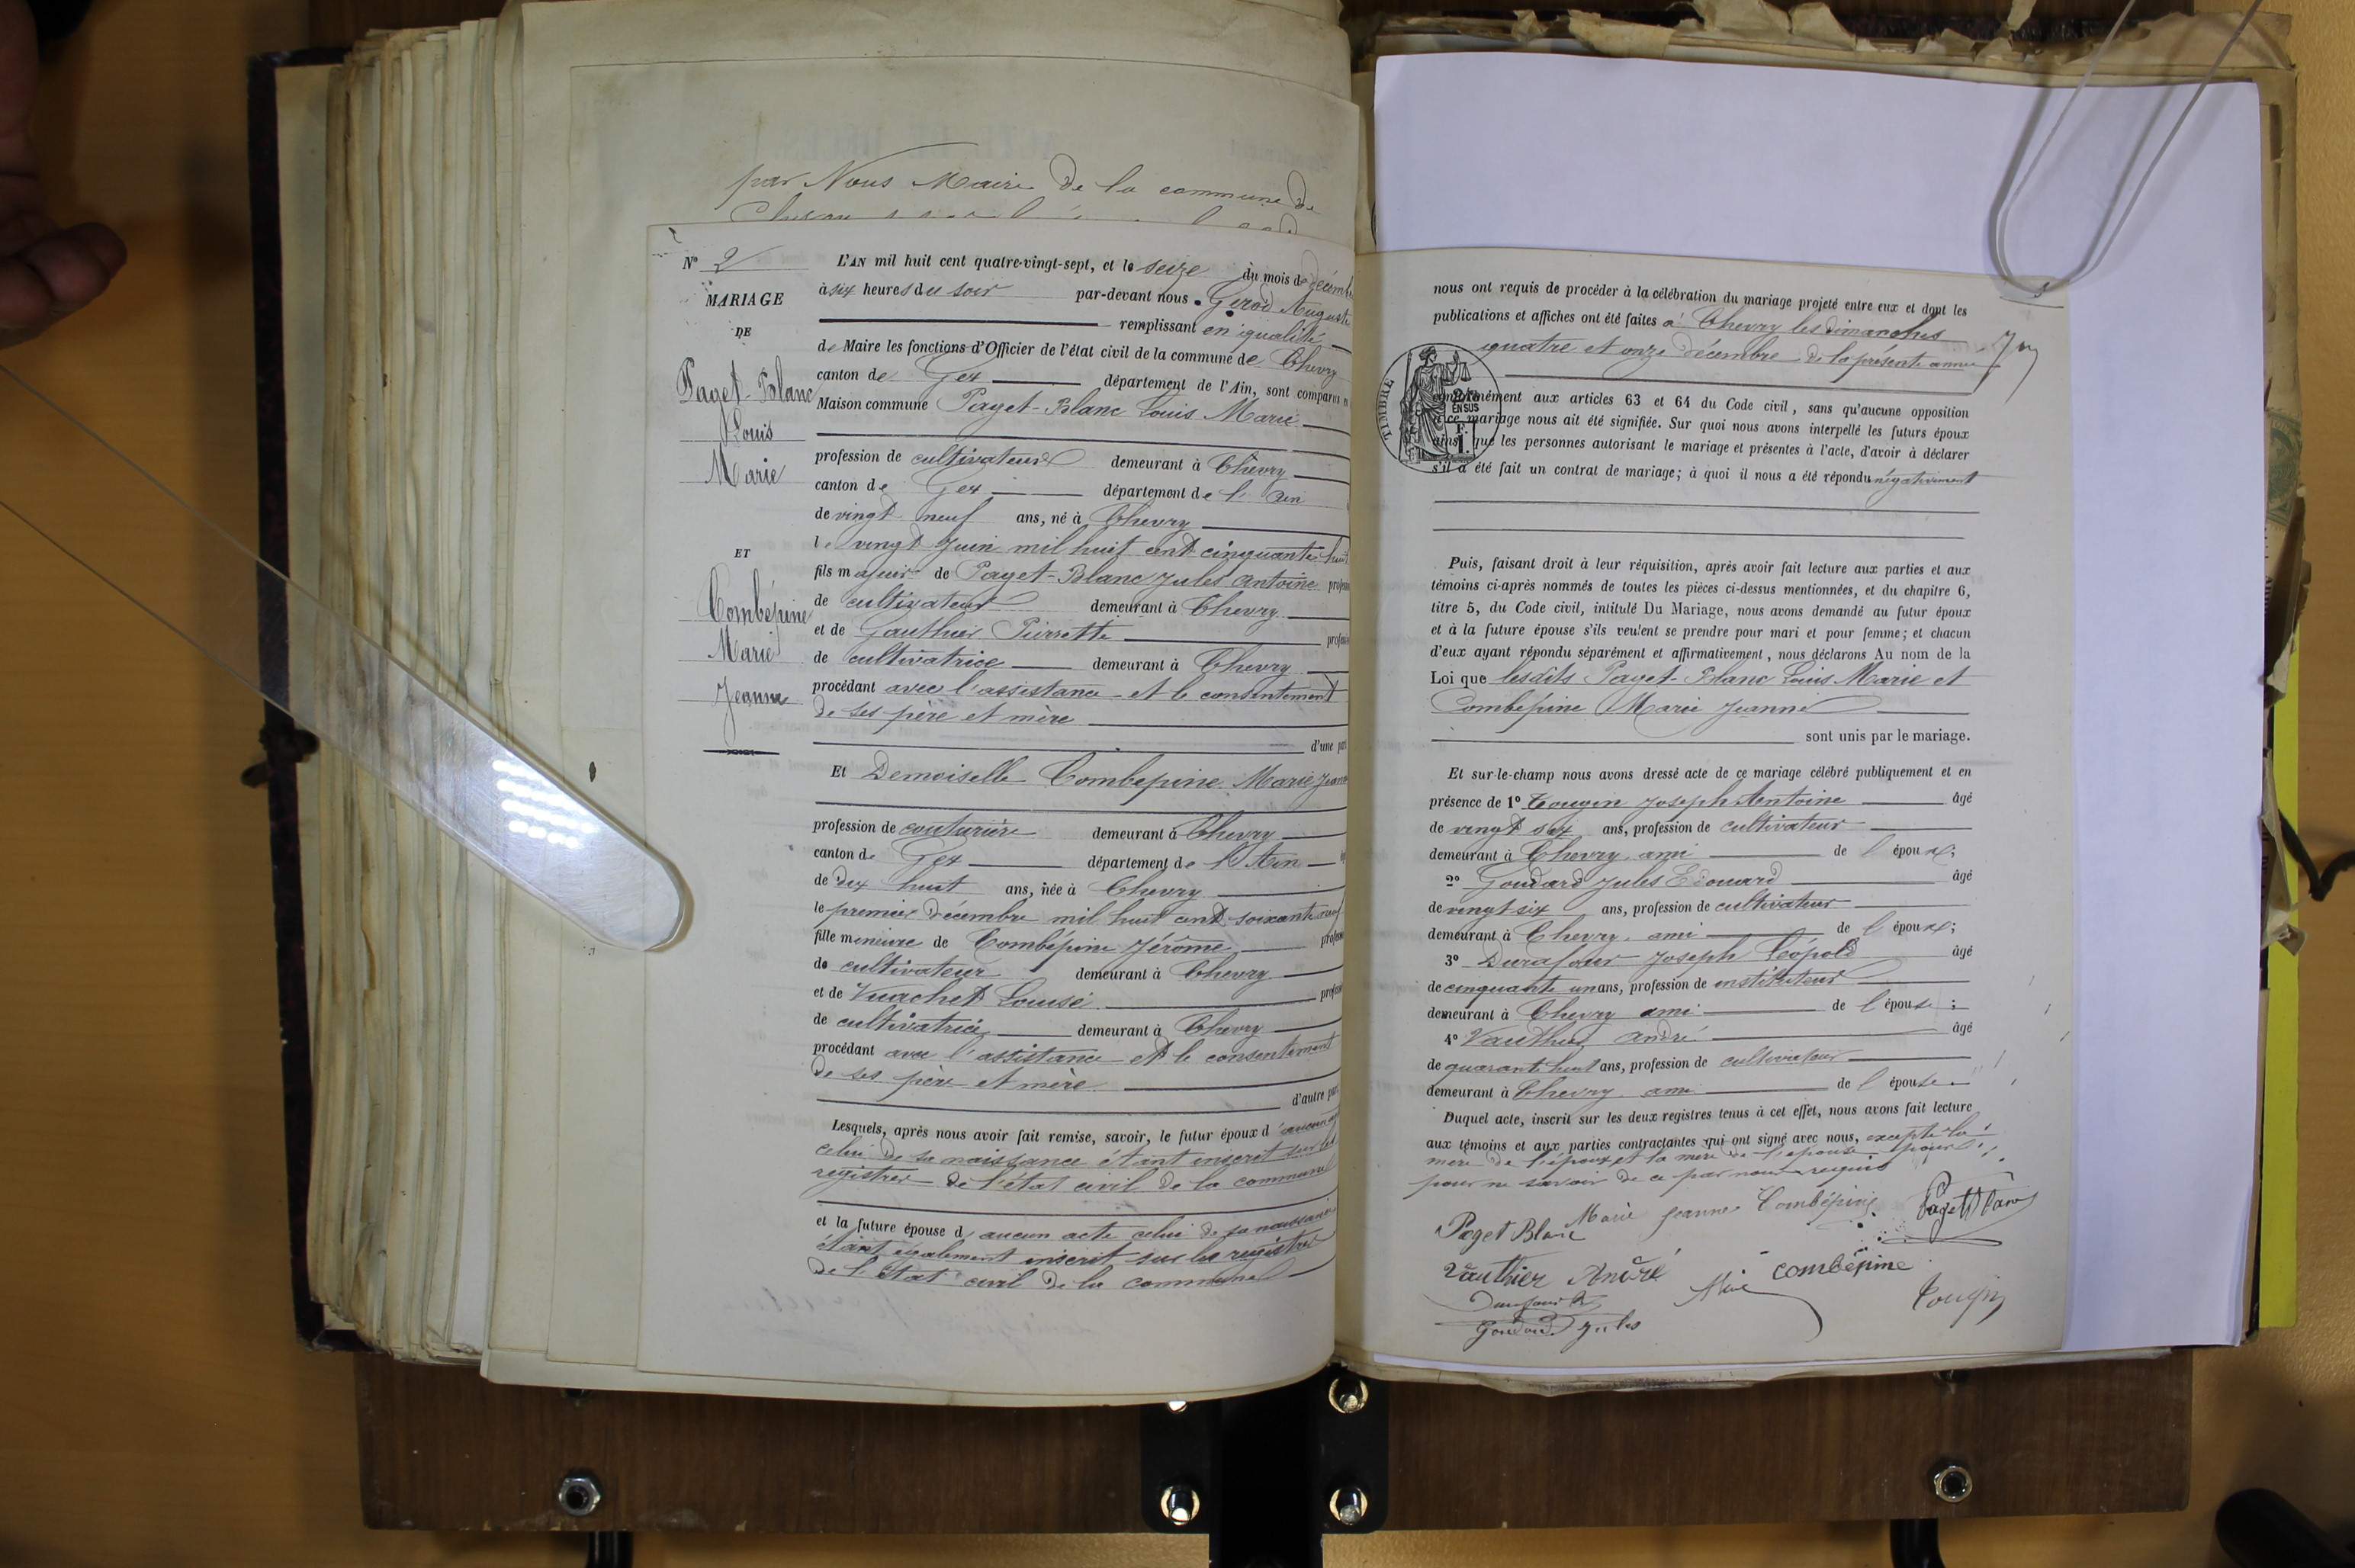 par Nous Maire de la commune de
N° 2
MARIAGE
DE
Paget-Blanc
Louis
Marie
ET
Combépine
Marie
Jeanne
L'AN mil huit cent quatre-vingt-sept, et le seize du mois de décemb
à six heures du soir par-devant nous Girod Auguste
remplissant en qualité
de Maire les fonctions d'Officier de l'état civil de la commune de Chevry
canton de Gex département de l'Ain, sont comparus en
Maison commune Paget-Blanc Louis Marie
profession de cultivateur demeurant à Chevry
canton de Gex département de l' Ain
de vingt neuf ans, né à Chevry
le vingt Juin mil huit cent cinquante huit
fils majeur de Paget-Blanc Jules Antoine profess
de cultivateur demeurant à Chevry
et de Gauthier Pierrette profess
de cultivatrice demeurant à Chevry
procédant avec l'assistance et le consentement
de ses père et mère
d'une par
Et Demoiselle Combépine Marie Jeanne
profession de couturière demeurant à Chevry
canton de Gex département de l'Ain
de dix huit ans, née à Chevry
le premier décembre mil huit cent soixante neuf
fille mineure de Combépine Jérôme profess
de cultivateur demeurant à Chevry
et de Vuachet Louise profess
de cultivatrice demeurant à Chevry
procédant avec l'assistance et le consentement
de ses père et mère
d'autre part
Lesquels, après nous avoir fait remise, savoir, le futur époux d'aucun
celui de sa naissance étant inscrit sur les
registres de l'état civil de la commune
et la future épouse d'aucun acte celui de sa naissance
étant également inscrit sur les registres
de l'état civil de la commune
nous ont requis de procéder à la célébration du mariage projeté entre eux et dont les
publications et affiches ont été faites à Chevry les dimanches
quatre et onze décembre de la présente année
TIMBRE
2/10
EN SUS
F.
1.
conformément aux articles 63 et 64 du Code civil, sans qu'aucune opposition
à ce mariage nous ait été signifiée. Sur quoi nous avons interpellé les futurs époux
ainsi que les personnes autorisant le mariage et présentes à l'acte, d'avoir à déclarer
s'il a été fait un contrat de mariage; à quoi il nous a été répondu négativement
Puis, faisant droit à leur réquisition, après avoir fait lecture aux parties et aux
témoins ci-après nommés de toutes les pièces ci-dessus mentionnées, et du chapitre 6,
titre 5, du Code civil, intitulé Du Mariage, nous avons demandé au futur époux
et à la future épouse s'ils veulent se prendre pour mari et pour femme; et chacun
d'eux ayant répondu séparément et affirmativement, nous déclarons Au nom de la
Loi que lesdits Paget-Blanc Louis Marie et
Combépine Marie Jeanne
sont unis par le mariage.
Et sur-le-champ nous avons dressé acte de ce mariage célébré publiquement et en
présence de 1° Tougin Joseph Antoine âgé
de vingt six ans, profession de cultivateur
demeurant à Chevry, ami de l'époux;
2° Goudard Jules Edouard âgé
de vingt six ans, profession de cultivateur
demeurant à Chevry, ami de l'époux;
3° Durafour Joseph Léopold âgé
de cinquante un ans, profession de instituteur
demeurant à Chevry ami de l'épouse;
4° Vauthier André âgé
de quarante huit ans, profession de cultivateur
demeurant à Chevry ami de l'épouse
Duquel acte, inscrit sur les deux registres tenus à cet effet, nous avons fait lecture
aux témoins et aux parties contractantes qui ont signé avec nous, excepté la
mère de l'époux et la mère de l'épouse
pour ne savoir de ce par nous requis
Paget Blanc Marie Jeanne Combépine Paget Blanc
Vauthier André combépine
Durafour Tougin
Goudard Jules